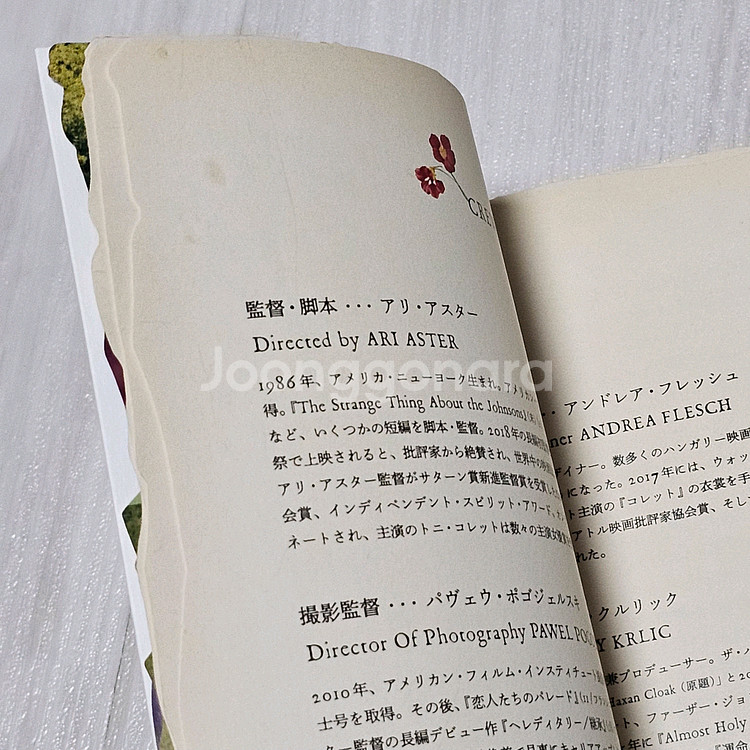 CRE
監督・脚本 ・・・ アリ・アスター
Directed by ARI ASTER
1986年、アメリカ・ニューヨーク生まれ。アメリカ
得。『The Strange Thing About the Johnsons』
など、いくつかの短編を脚本・監督。2018年の長編
祭で上映されると、批評家から絶賛され、世界中の
アリ・アスター監督がサターン賞新進監督賞を受賞
会賞、インディペンデント・スピリット・アワード、
ネートされ、主演のトニ・コレットは数々の主演女優
撮影監督 ・・・ パヴェウ・ポゴジェルスキ
Director Of Photography PAWEL POG
2010年、アメリカン・フィルム・インスティチュート
士号を取得。その後、『恋人たちのパレード』(11/
ター監督の長編デビュー作『ヘレディタリー/継承』
・・ アンドレア・フレッシュ
ner ANDREA FLESCH
デイナー。数多くのハンガリー映画
になった。2017年には、ウォッ
ト主演の『コレット』の衣裳を手
アトル映画批評家協会賞、そし
れた。
クルリック
Y KRLIC
兼プロデューサー。ザ・
Haxan Cloak(原題)」と20
ート、ファーザー・ジョ
年に『Almost Holy
Joonggonara